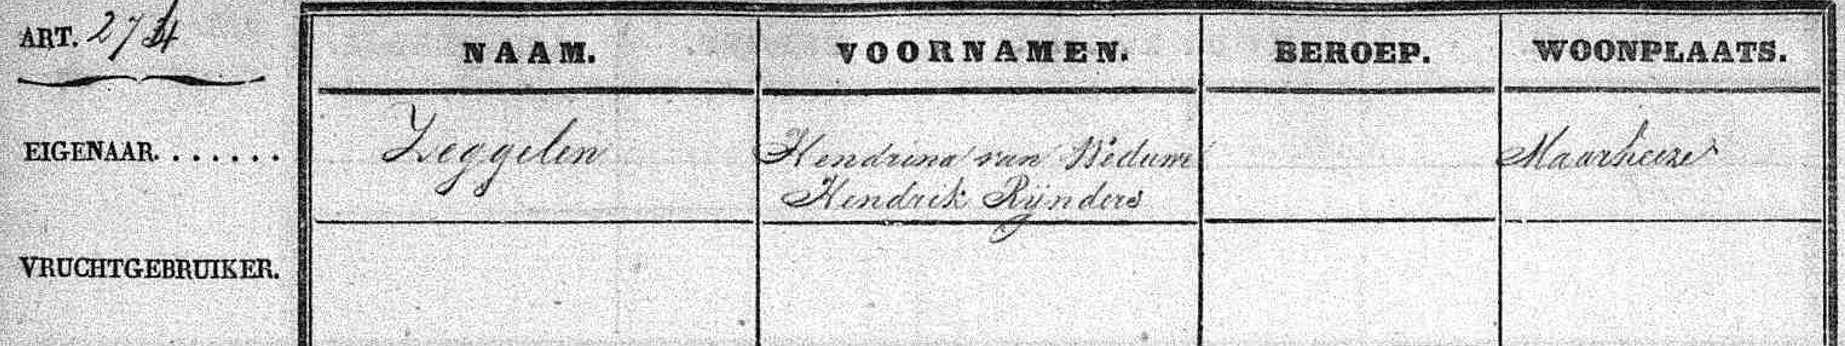 ART. 274
NAAM. VOORNAMEN. BEROEP. WOONPLAATS.
EIGENAAR. . . . . . . Zeggelen Hendrina van Weduwe Maarheeze
Hendrik Rijnders
VRUCHTGEBRUIKER.